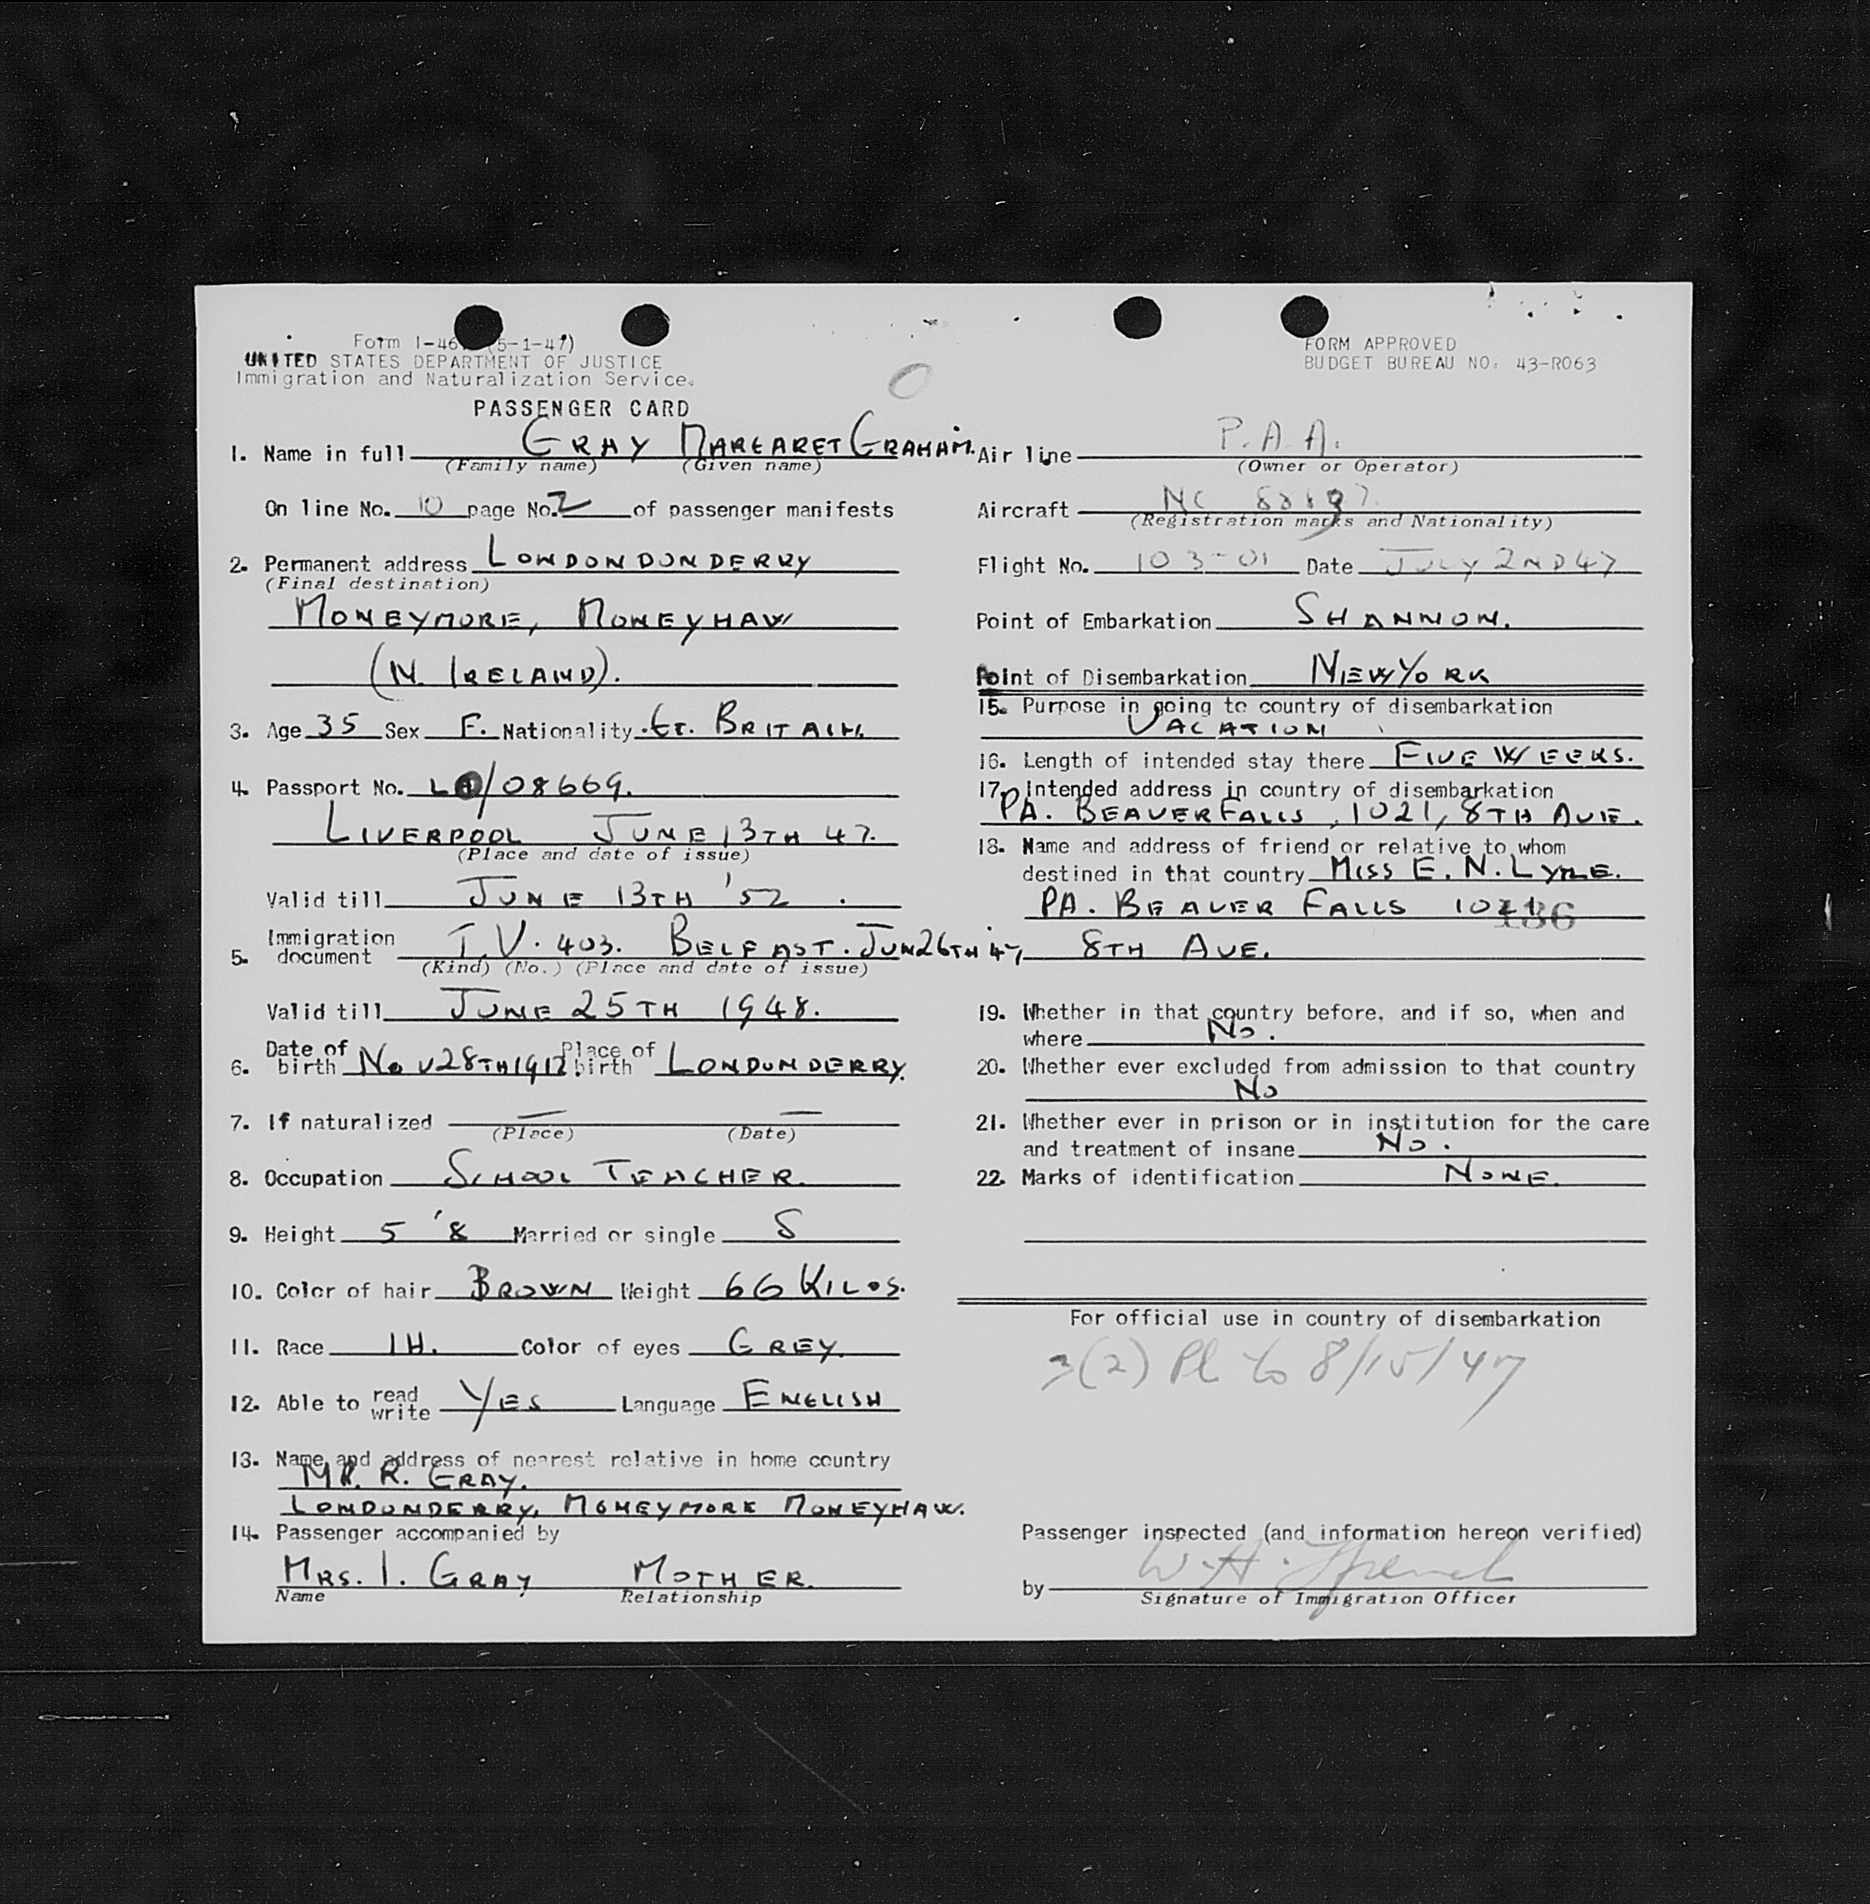 Form I-46 (5-1-47)
UNITED STATES DEPARTMENT OF JUSTICE
Immigration and Naturalization Service.
PASSENGER CARD
FORM APPROVED
BUDGET BUREAU NO. 43-R063
1. Name in full GRAY MARGARET GRAHAM.
(Family name) (Given name)
On line No. 10 page No. 2 of passenger manifests
2. Permanent address LONDONDONDERRY
(Final destination)
MONEYMORE, MONEYHAW
(N. IRELAND).
3. Age 35 Sex F. Nationality GT. BRITAIN.
4. Passport No. L /08669.
LIVERPOOL JUNE 13TH 47.
(Place and date of issue)
Valid till JUNE 13TH '52
5. Immigration document T.V. 403. BELFAST. JUN 26TH 47
(Kind) (No.) (Place and date of issue)
Valid till JUNE 25TH 1948.
6. Date of birth NOV 28TH 1912. Place of birth LONDONDERRY.
7. If naturalized — —
(Place) (Date)
8. Occupation SCHOOL TEACHER.
9. Height 5 '8 Married or single S
10. Color of hair BROWN Weight 66 KILOS.
11. Race IH. Color of eyes GREY.
12. Able to read write YES Language ENGLISH
13. Name and address of nearest relative in home country
MR. R. GRAY.
LONDONDERRY, MONEYMORE MONEYHAW.
14. Passenger accompanied by
MRS. I. GRAY MOTHER.
Name Relationship
Air line P.A.A.
(Owner or Operator)
Aircraft NC
(Registration marks and Nationality)
Flight No. 103-01 Date JULY 2ND 47
Point of Embarkation SHANNON.
Point of Disembarkation NEW YORK
15. Purpose in going to country of disembarkation
VACATION
16. Length of intended stay there FIVE WEEKS.
17. Intended address in country of disembarkation
PA. BEAVER FALLS, 1021, 8TH AVE.
18. Name and address of friend or relative to whom
destined in that country MISS E. N. LYLE.
PA. BEAVER FALLS 1021
186
8TH AVE.
19. Whether in that country before, and if so, when and
where NO.
20. Whether ever excluded from admission to that country
NO
21. Whether ever in prison or in institution for the care
and treatment of insane NO.
22. Marks of identification NONE.
For official use in country of disembarkation
3(2) Pl to 8/15/47
Passenger inspected (and information hereon verified)
by W. H.
Signature of Immigration Officer